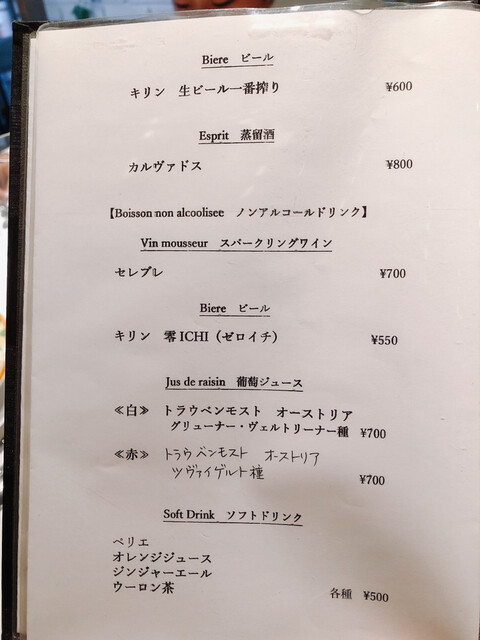 Biere ビール
キリン 生ビール一番搾り ¥600
Esprit 蒸留酒
カルヴァドス ¥800
【Boisson non alcoolisee ノンアルコールドリンク】
Vin mousseur スパークリングワイン
セレブレ ¥700
Biere ビール
キリン 零ICHI（ゼロイチ） ¥550
Jus de raisin 葡萄ジュース
≪白≫ トラウベンモスト オーストリア
グリューナー・ヴェルトリーナー種 ¥700
≪赤≫ トラウベンモスト オーストリア
ツヴァイゲルト種 ¥700
Soft Drink ソフトドリンク
ペリエ
オレンジジュース
ジンジャーエール
ウーロン茶 各種 ¥500